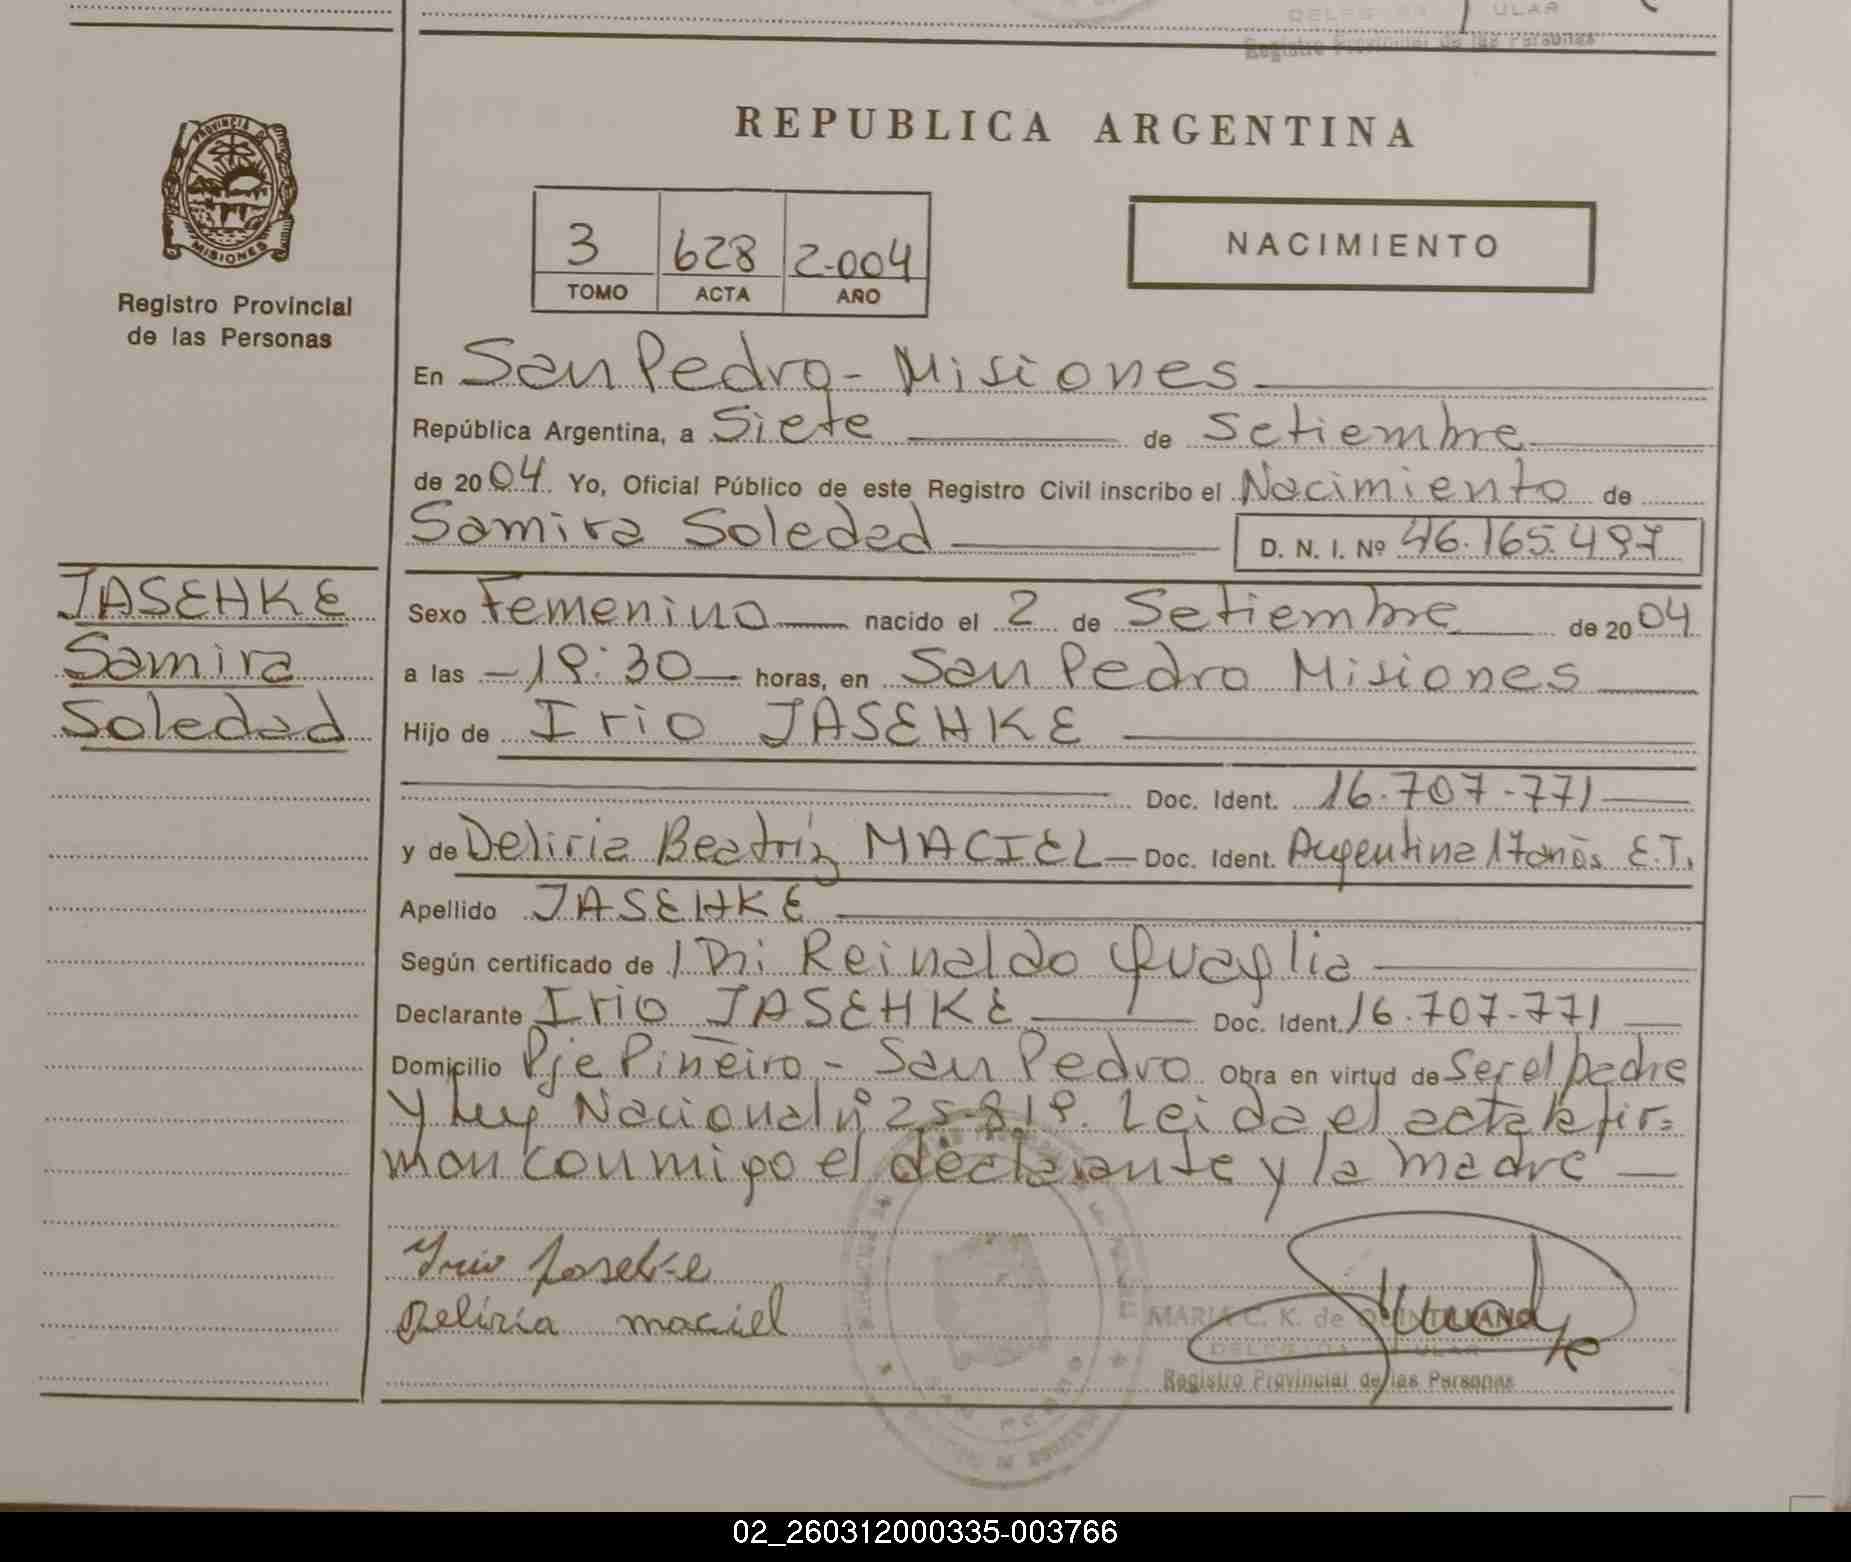 ULAR
Registro Provincial de las Personas
REPUBLICA ARGENTINA
PROVINCIA DE
MISIONES
Registro Provincial
de las Personas
3 628 2.004
TOMO ACTA AÑO
NACIMIENTO
En San Pedro - Misiones
República Argentina, a Siete de Setiembre
de 2004. Yo, Oficial Público de este Registro Civil inscribo el Nacimiento de
Samira Soledad D. N. I. Nº 46.165.497
JASEHKE
Samira
Soledad
Sexo Femenino nacido el 2 de Setiembre de 2004
a las - 18:30 - horas, en San Pedro Misiones
Hijo de Irio JASEHKE
Doc. Ident. 16.707.771
y de Deliria Beatriz MACIEL - Doc. Ident. Argentina 17 anõs E.T.
Apellido JASEHKE
Según certificado de Reinaldo Quaglia
Declarante Irio JASEHKE Doc. Ident. 16.707.771
Domicilio Pje Piñeiro - San Pedro Obra en virtud de Ser el padre
y Ley Nacional nº 25.818. Leida el acta la fir=
man conmigo el declarante y la madre
Irio Jasehke
Deliria maciel
MARIA C. K. de QUINTANA
DELEGADA TITULAR
Registro Provincial de las Personas
02_260312000335-003766